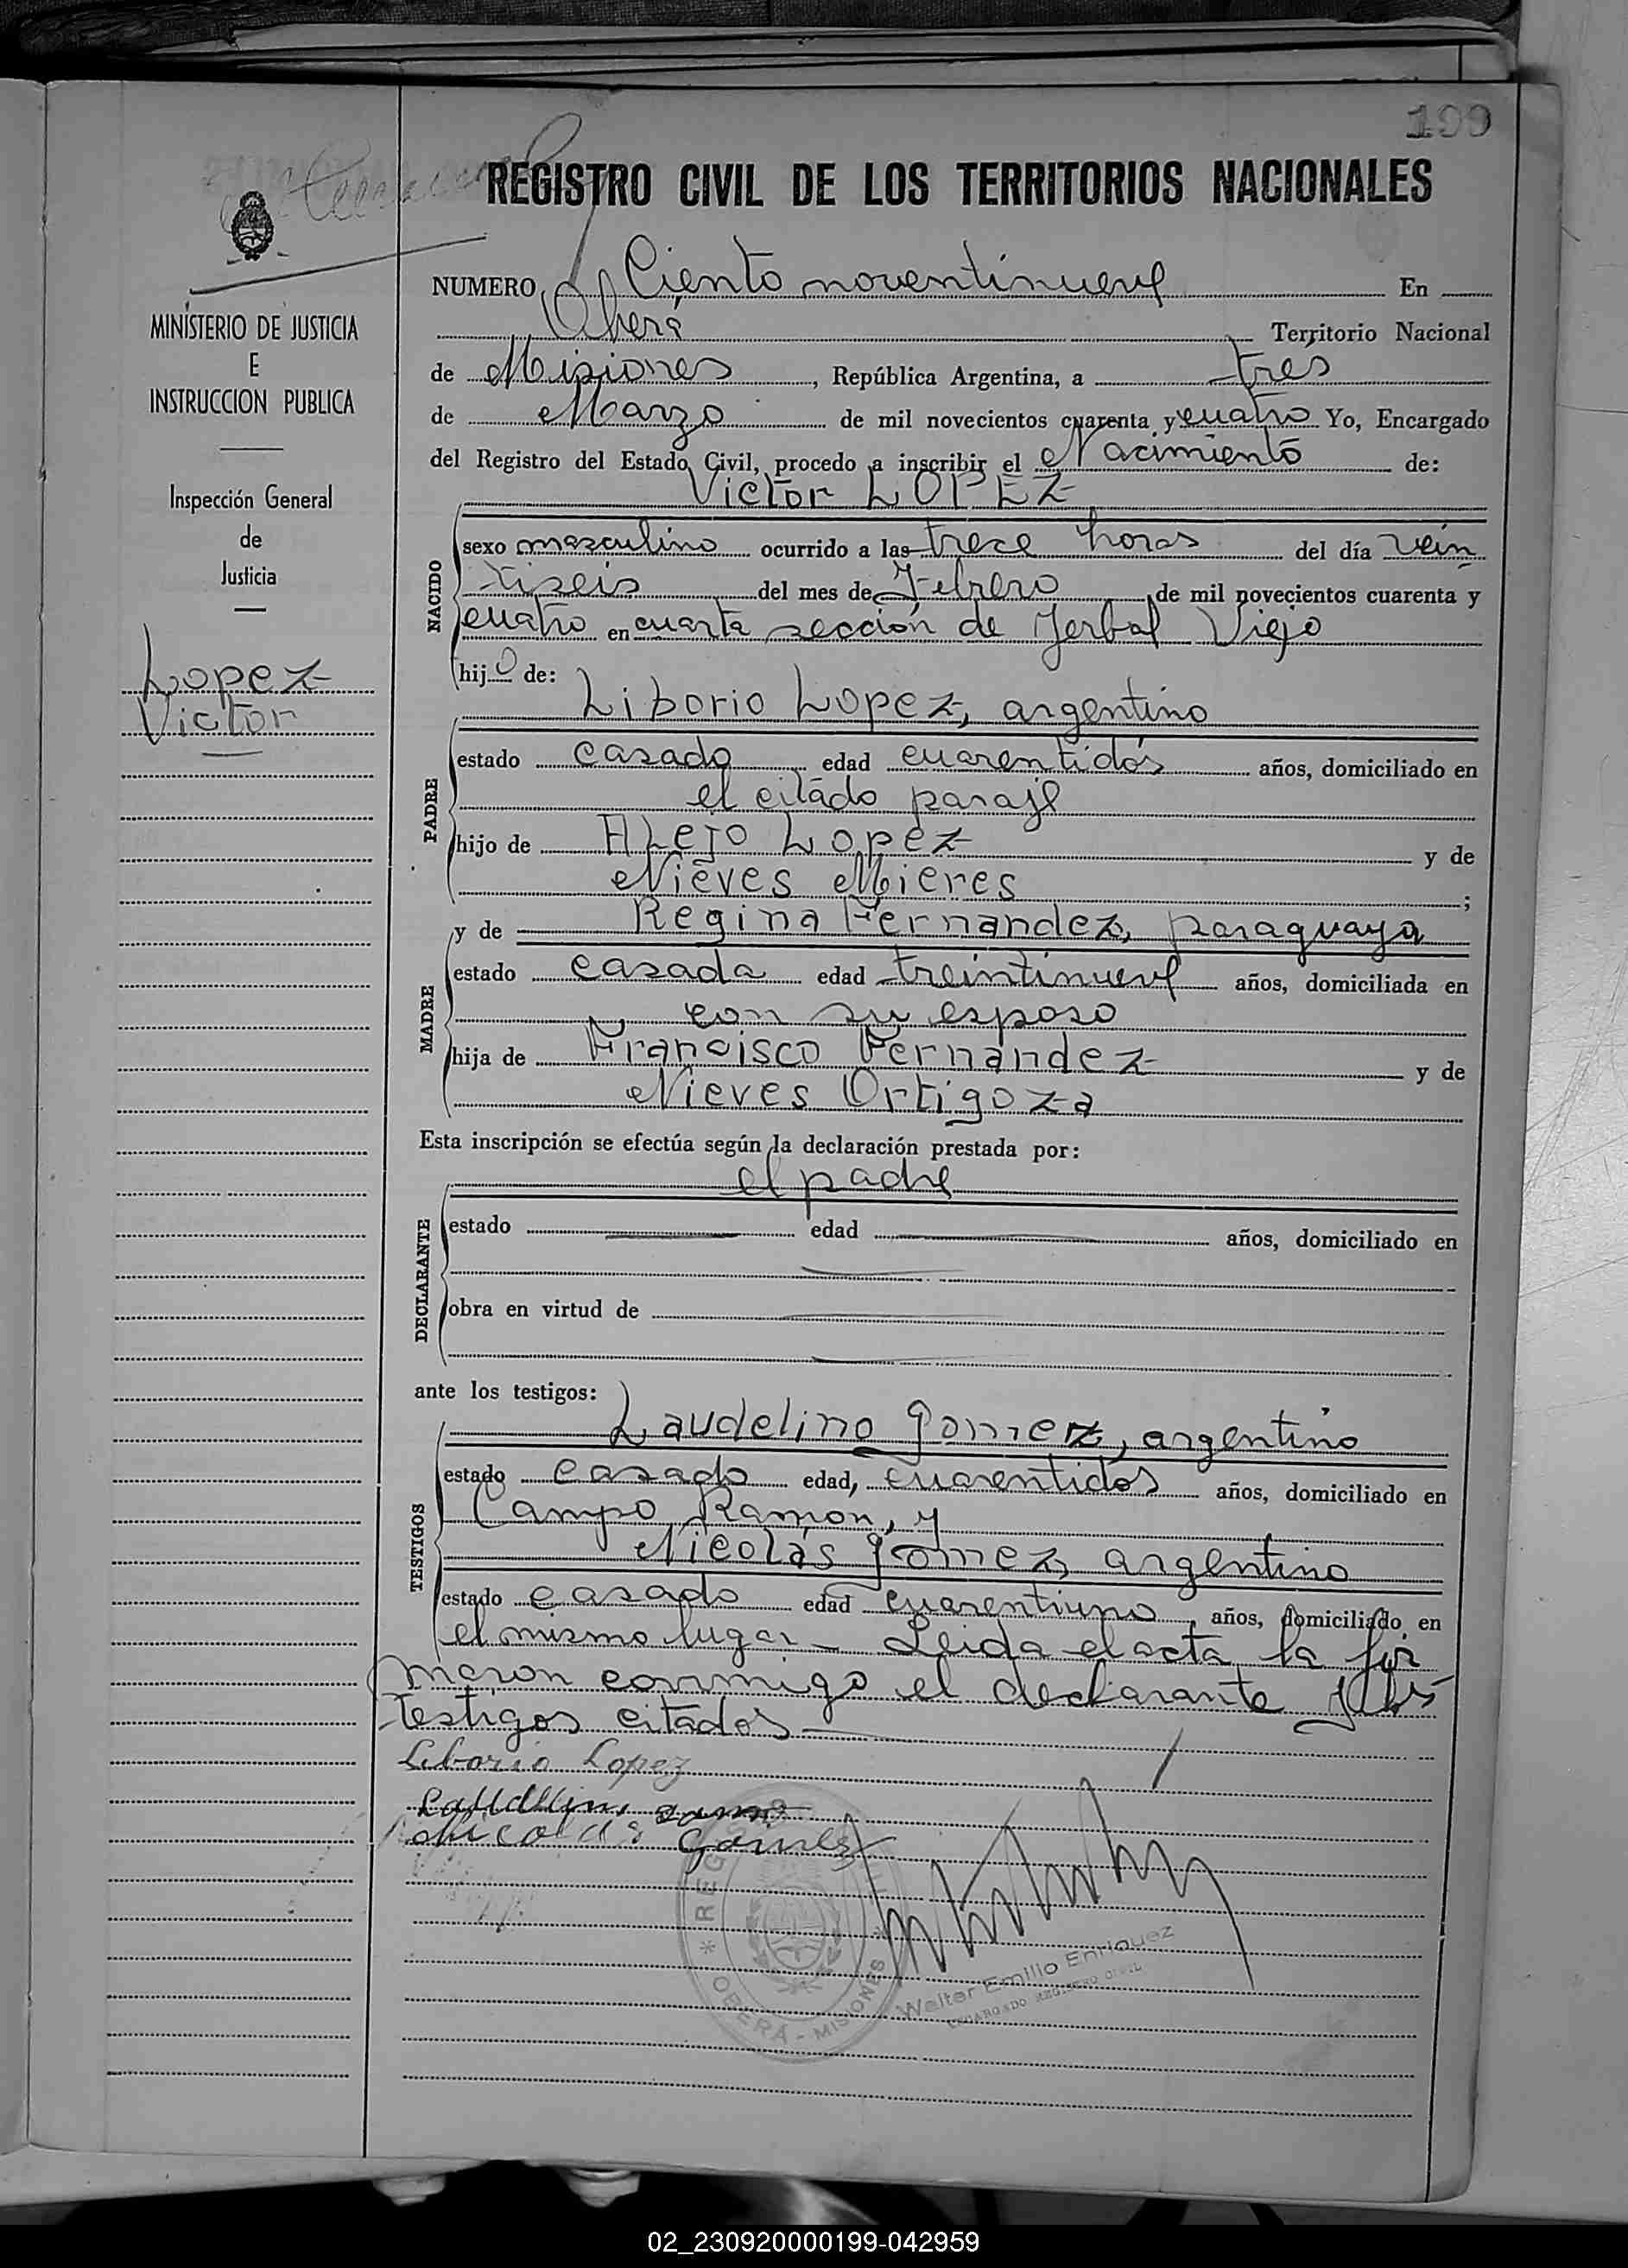 199
REGISTRO CIVIL DE LOS TERRITORIOS NACIONALES
NUMERO Ciento noventinueve En
Oberá Territorio Nacional
de Misiones, República Argentina, a tres
de Marzo de mil novecientos cuarenta y cuatro Yo, Encargado
del Registro del Estado Civil, procedo a inscribir el Nacimiento de:
Victor LOPEZ
MINISTERIO DE JUSTICIA
E
INSTRUCCION PUBLICA
Inspección General
de
Justicia
Lopez
Victor
NACIDO
sexo masculino ocurrido a las trece horas del día vein
tiseis del mes de Febrero de mil novecientos cuarenta y
cuatro en cuarta sección de Yerbal Viejo
hijo de:
PADRE
Liborio Lopez, argentino
estado casado edad cuarentidós años, domiciliado en
el citado paraje
hijo de ALejo Lopez y de
Nieves Mieres;
MADRE
y de Regina Fernandez, paraguaya
estado casada edad treintinueve años, domiciliada en
con su esposo
hija de Francisco Fernández y de
Nieves Ortigoza
Esta inscripción se efectúa según la declaración prestada por:
DECLARANTE
el padre
estado edad años, domiciliado en
obra en virtud de
ante los testigos:
TESTIGOS
Laudelino Gomez, argentino
estado casado edad, cuarentidós años, domiciliado en
Campo Ramon, y
Nicolás Gomez, argentino
estado casado edad cuarentiuno, años, domiciliado en
el mismo lugar - Leida el acta la fir
maron conmigo el declarante y los
testigos citados
Liborio Lopez
Nicolas Gomes
REG
OBERÁ - MISIONES
Walter Emilio Enriquez
ENCARGADO REGISTRO CIVIL
02_230920000199-042959